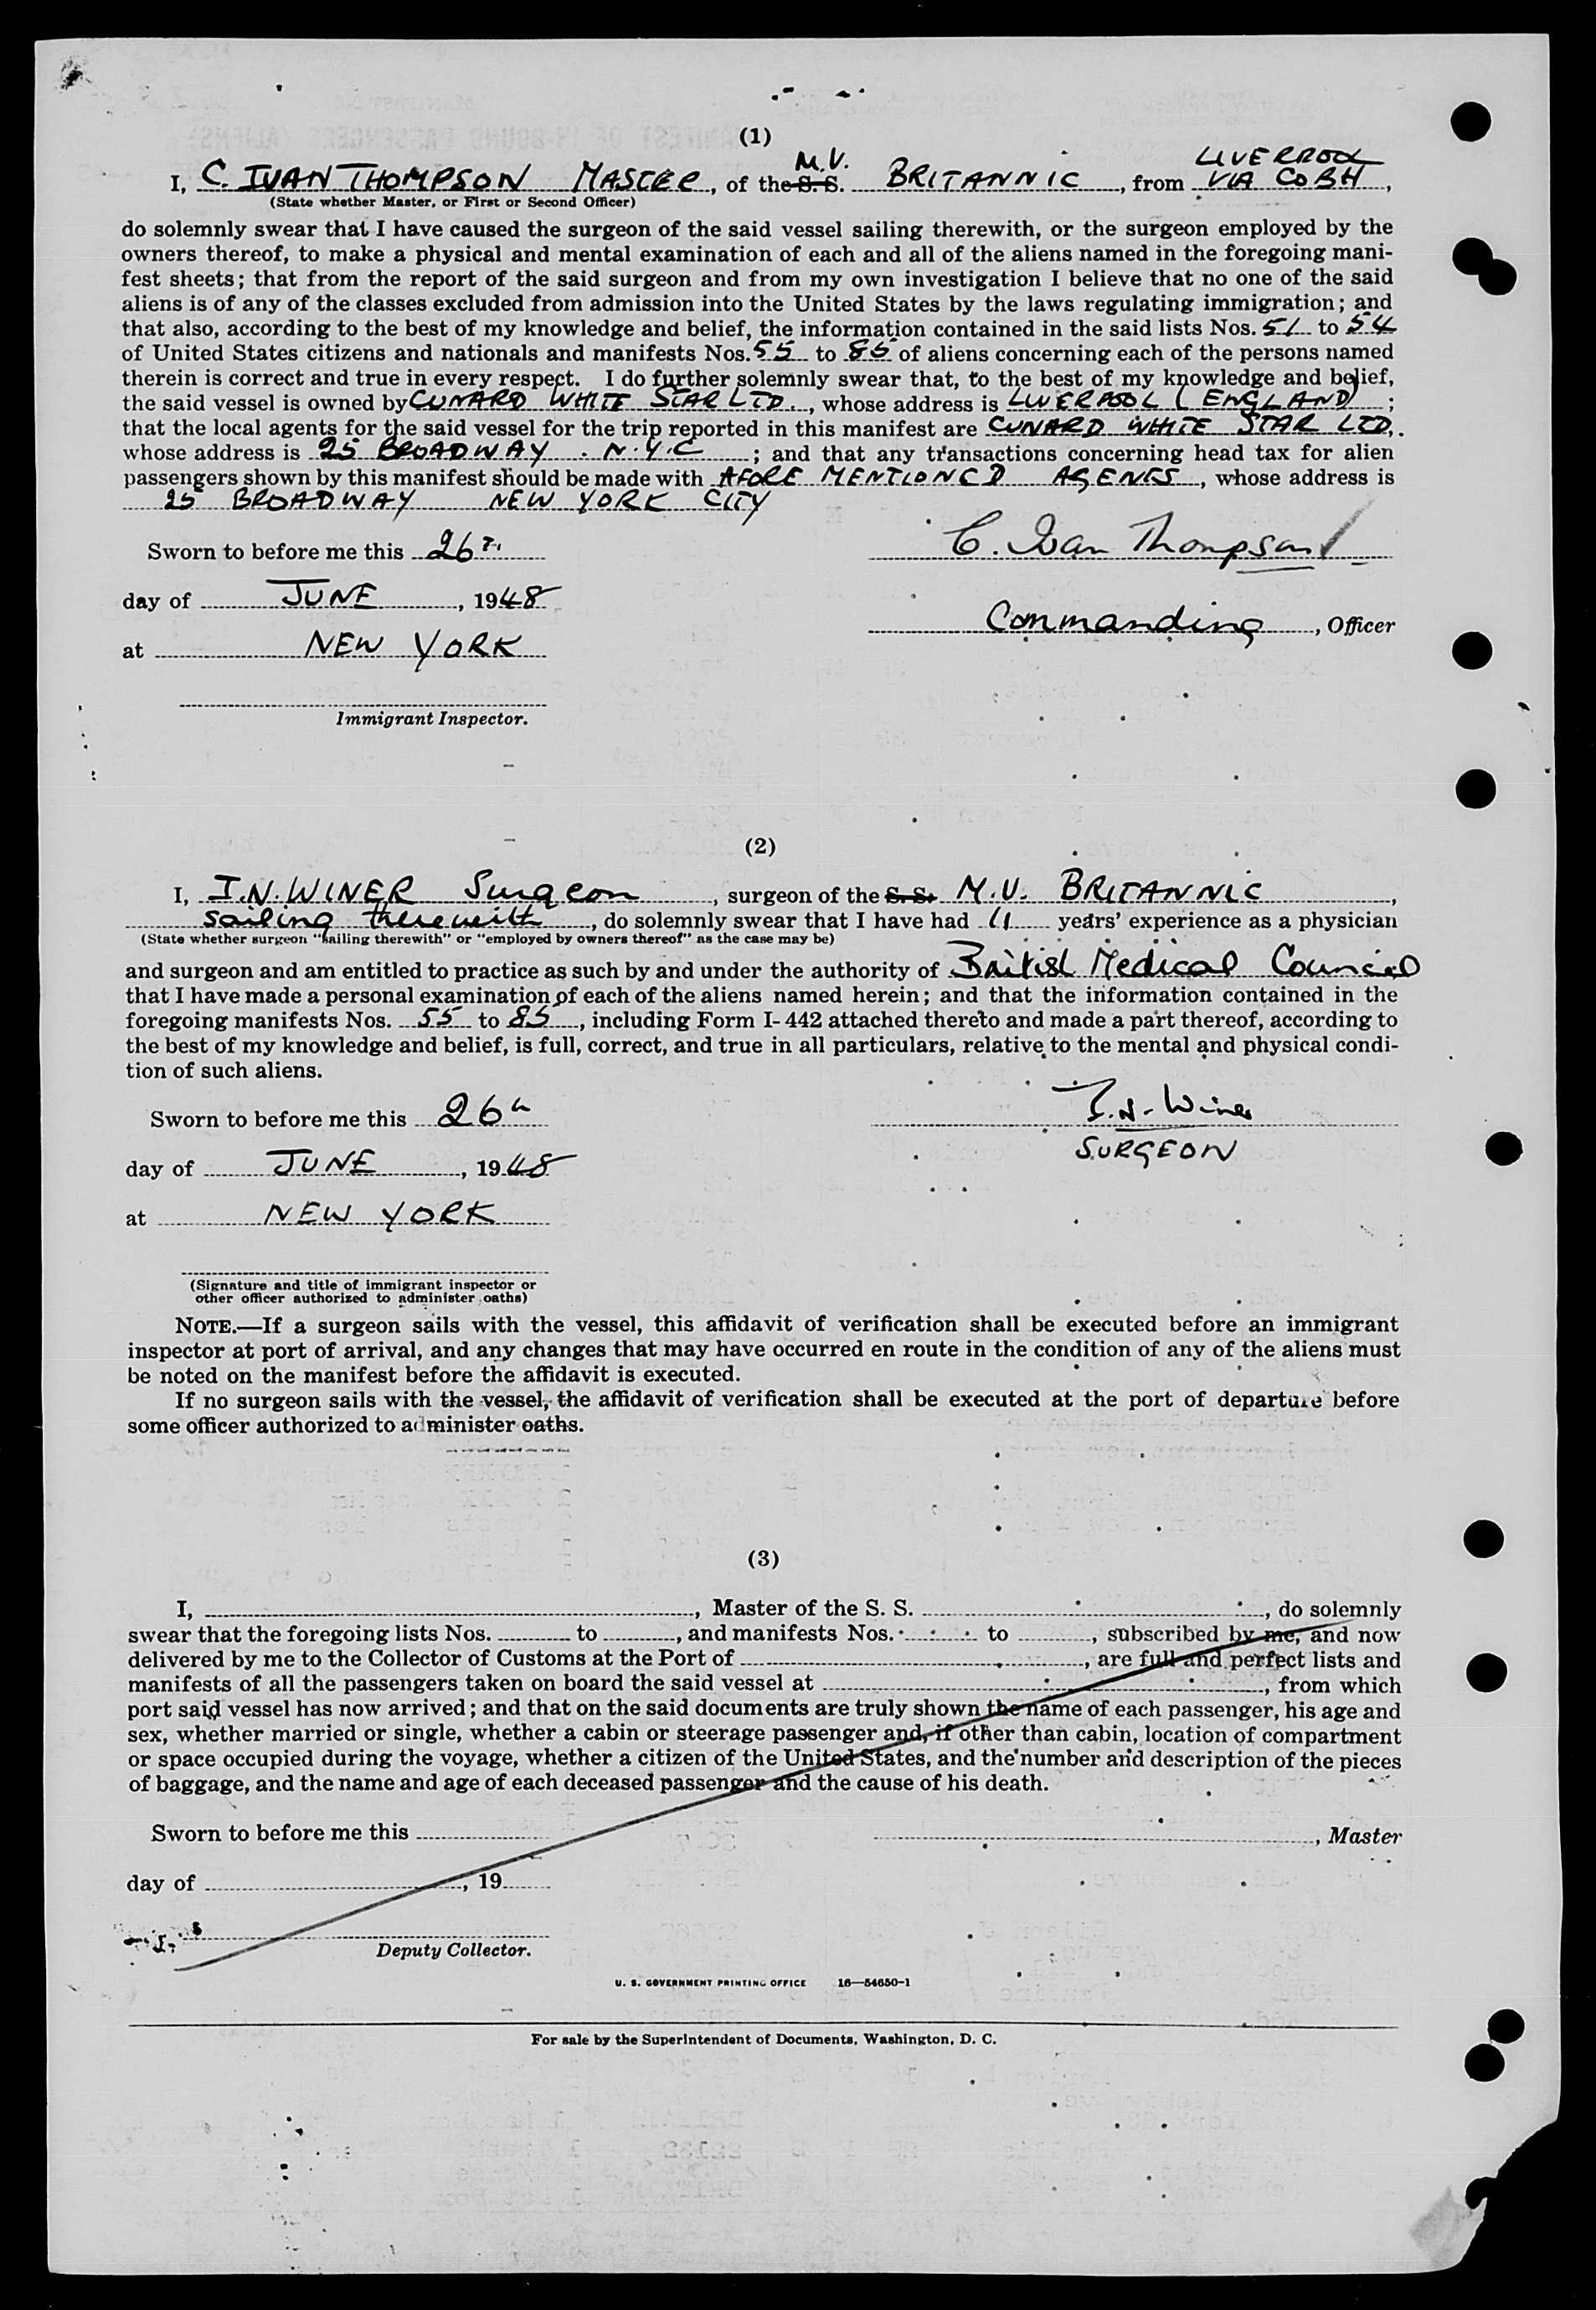 (1)
I, C. IVAN THOMPSON MASTER, of the S. S. M.V. BRITANNIC, from LIVERPOOL VIA COBH,
(State whether Master, or First or Second Officer)
do solemnly swear that I have caused the surgeon of the said vessel sailing therewith, or the surgeon employed by the
owners thereof, to make a physical and mental examination of each and all of the aliens named in the foregoing mani-
fest sheets; that from the report of the said surgeon and from my own investigation I believe that no one of the said
aliens is of any of the classes excluded from admission into the United States by the laws regulating immigration; and
that also, according to the best of my knowledge and belief, the information contained in the said lists Nos. 51 to 54
of United States citizens and nationals and manifests Nos. 55 to 85 of aliens concerning each of the persons named
therein is correct and true in every respect. I do further solemnly swear that, to the best of my knowledge and belief,
the said vessel is owned by CUNARD WHITE STAR LTD., whose address is LIVERPOOL (ENGLAND);
that the local agents for the said vessel for the trip reported in this manifest are CUNARD WHITE STAR LTD.
whose address is 25 BROADWAY . N.Y.C; and that any transactions concerning head tax for alien
passengers shown by this manifest should be made with AFORE MENTIONED AGENTS, whose address is
25 BROADWAY NEW YORK CITY
Sworn to before me this 26TH
C. Ivan Thompson
day of JUNE, 1948
Commanding, Officer
at NEW YORK
Immigrant Inspector.
(2)
I, I.N. WINER Surgeon, surgeon of the S. S. M.V. BRITANNIC,
sailing therewith, do solemnly swear that I have had 11 years' experience as a physician
(State whether surgeon "sailing therewith" or "employed by owners thereof" as the case may be)
and surgeon and am entitled to practice as such by and under the authority of British Medical Council
that I have made a personal examination of each of the aliens named herein; and that the information contained in the
foregoing manifests Nos. 55 to 85, including Form I-442 attached thereto and made a part thereof, according to
the best of my knowledge and belief, is full, correct, and true in all particulars, relative to the mental and physical condi-
tion of such aliens.
Sworn to before me this 26th
I.N. Winer
SURGEON
day of JUNE, 1948
at NEW YORK
(Signature and title of immigrant inspector or
other officer authorized to administer oaths)
NOTE.—If a surgeon sails with the vessel, this affidavit of verification shall be executed before an immigrant
inspector at port of arrival, and any changes that may have occurred en route in the condition of any of the aliens must
be noted on the manifest before the affidavit is executed.
If no surgeon sails with the vessel, the affidavit of verification shall be executed at the port of departure before
some officer authorized to administer oaths.
(3)
I, , Master of the S. S. , do solemnly
swear that the foregoing lists Nos. to , and manifests Nos. to , subscribed by me, and now
delivered by me to the Collector of Customs at the Port of , are full and perfect lists and
manifests of all the passengers taken on board the said vessel at , from which
port said vessel has now arrived; and that on the said documents are truly shown the name of each passenger, his age and
sex, whether married or single, whether a cabin or steerage passenger and, if other than cabin, location of compartment
or space occupied during the voyage, whether a citizen of the United States, and the number and description of the pieces
of baggage, and the name and age of each deceased passenger and the cause of his death.
Sworn to before me this
, Master
day of , 19
Deputy Collector.
U. S. GOVERNMENT PRINTING OFFICE 16—54650-1
For sale by the Superintendent of Documents, Washington, D. C.